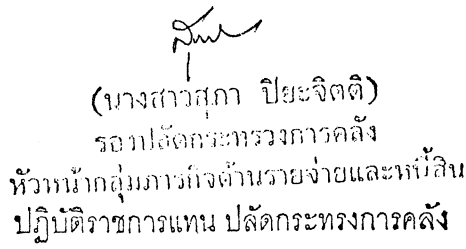 (นางสาวสุภา ปิยะจิตติ)
รองปลัดกระทรวงการคลัง
หัวหน้ากลุ่มภารกิจด้านรายจ่ายและหนี้สิน
ปฏิบัติราชการแทน ปลัดกระทรงการคลัง